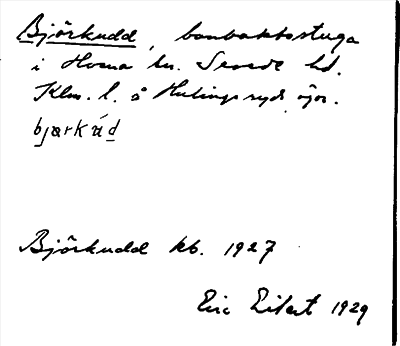 Björkudd, bonbaktsstuga
i Hvena sn. Sevede hd.
Klm. l. å Hulingsryds ägor.
bjærkúd
Björkudd kb. 1927
Eric Eilert 1929